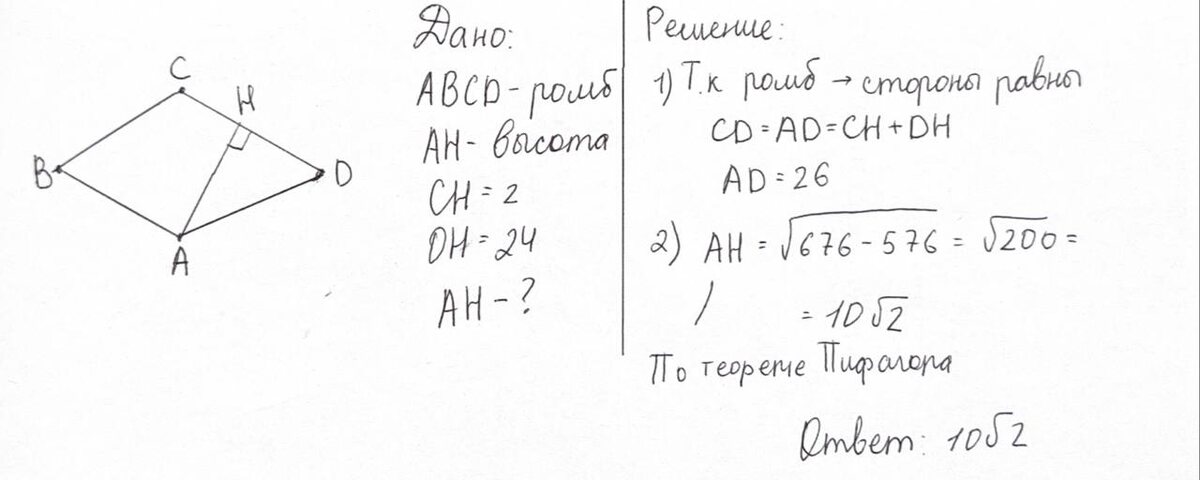 C
H
B
D
A
Дано:
ABCD - ромб
AH - высота
CH = 2
DH = 24
AH - ?
Решение:
1) Т.к ромб → стороны равны
CD = AD = CH + DH
AD = 26
2) AH = √676 - 576 = √200 =
= 10√2
По теореме Пифагора
Ответ: 10√2